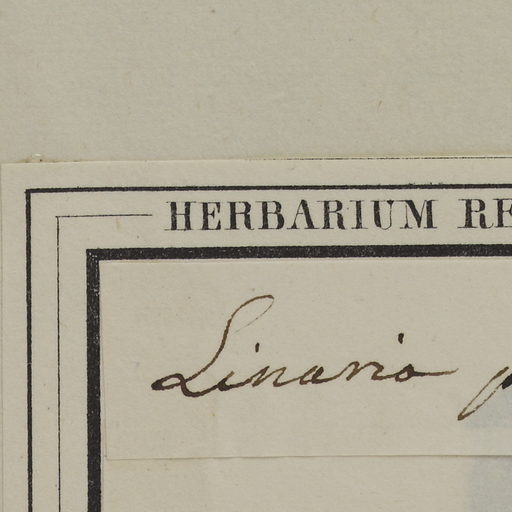 HERBARIUM RE
Linaria p